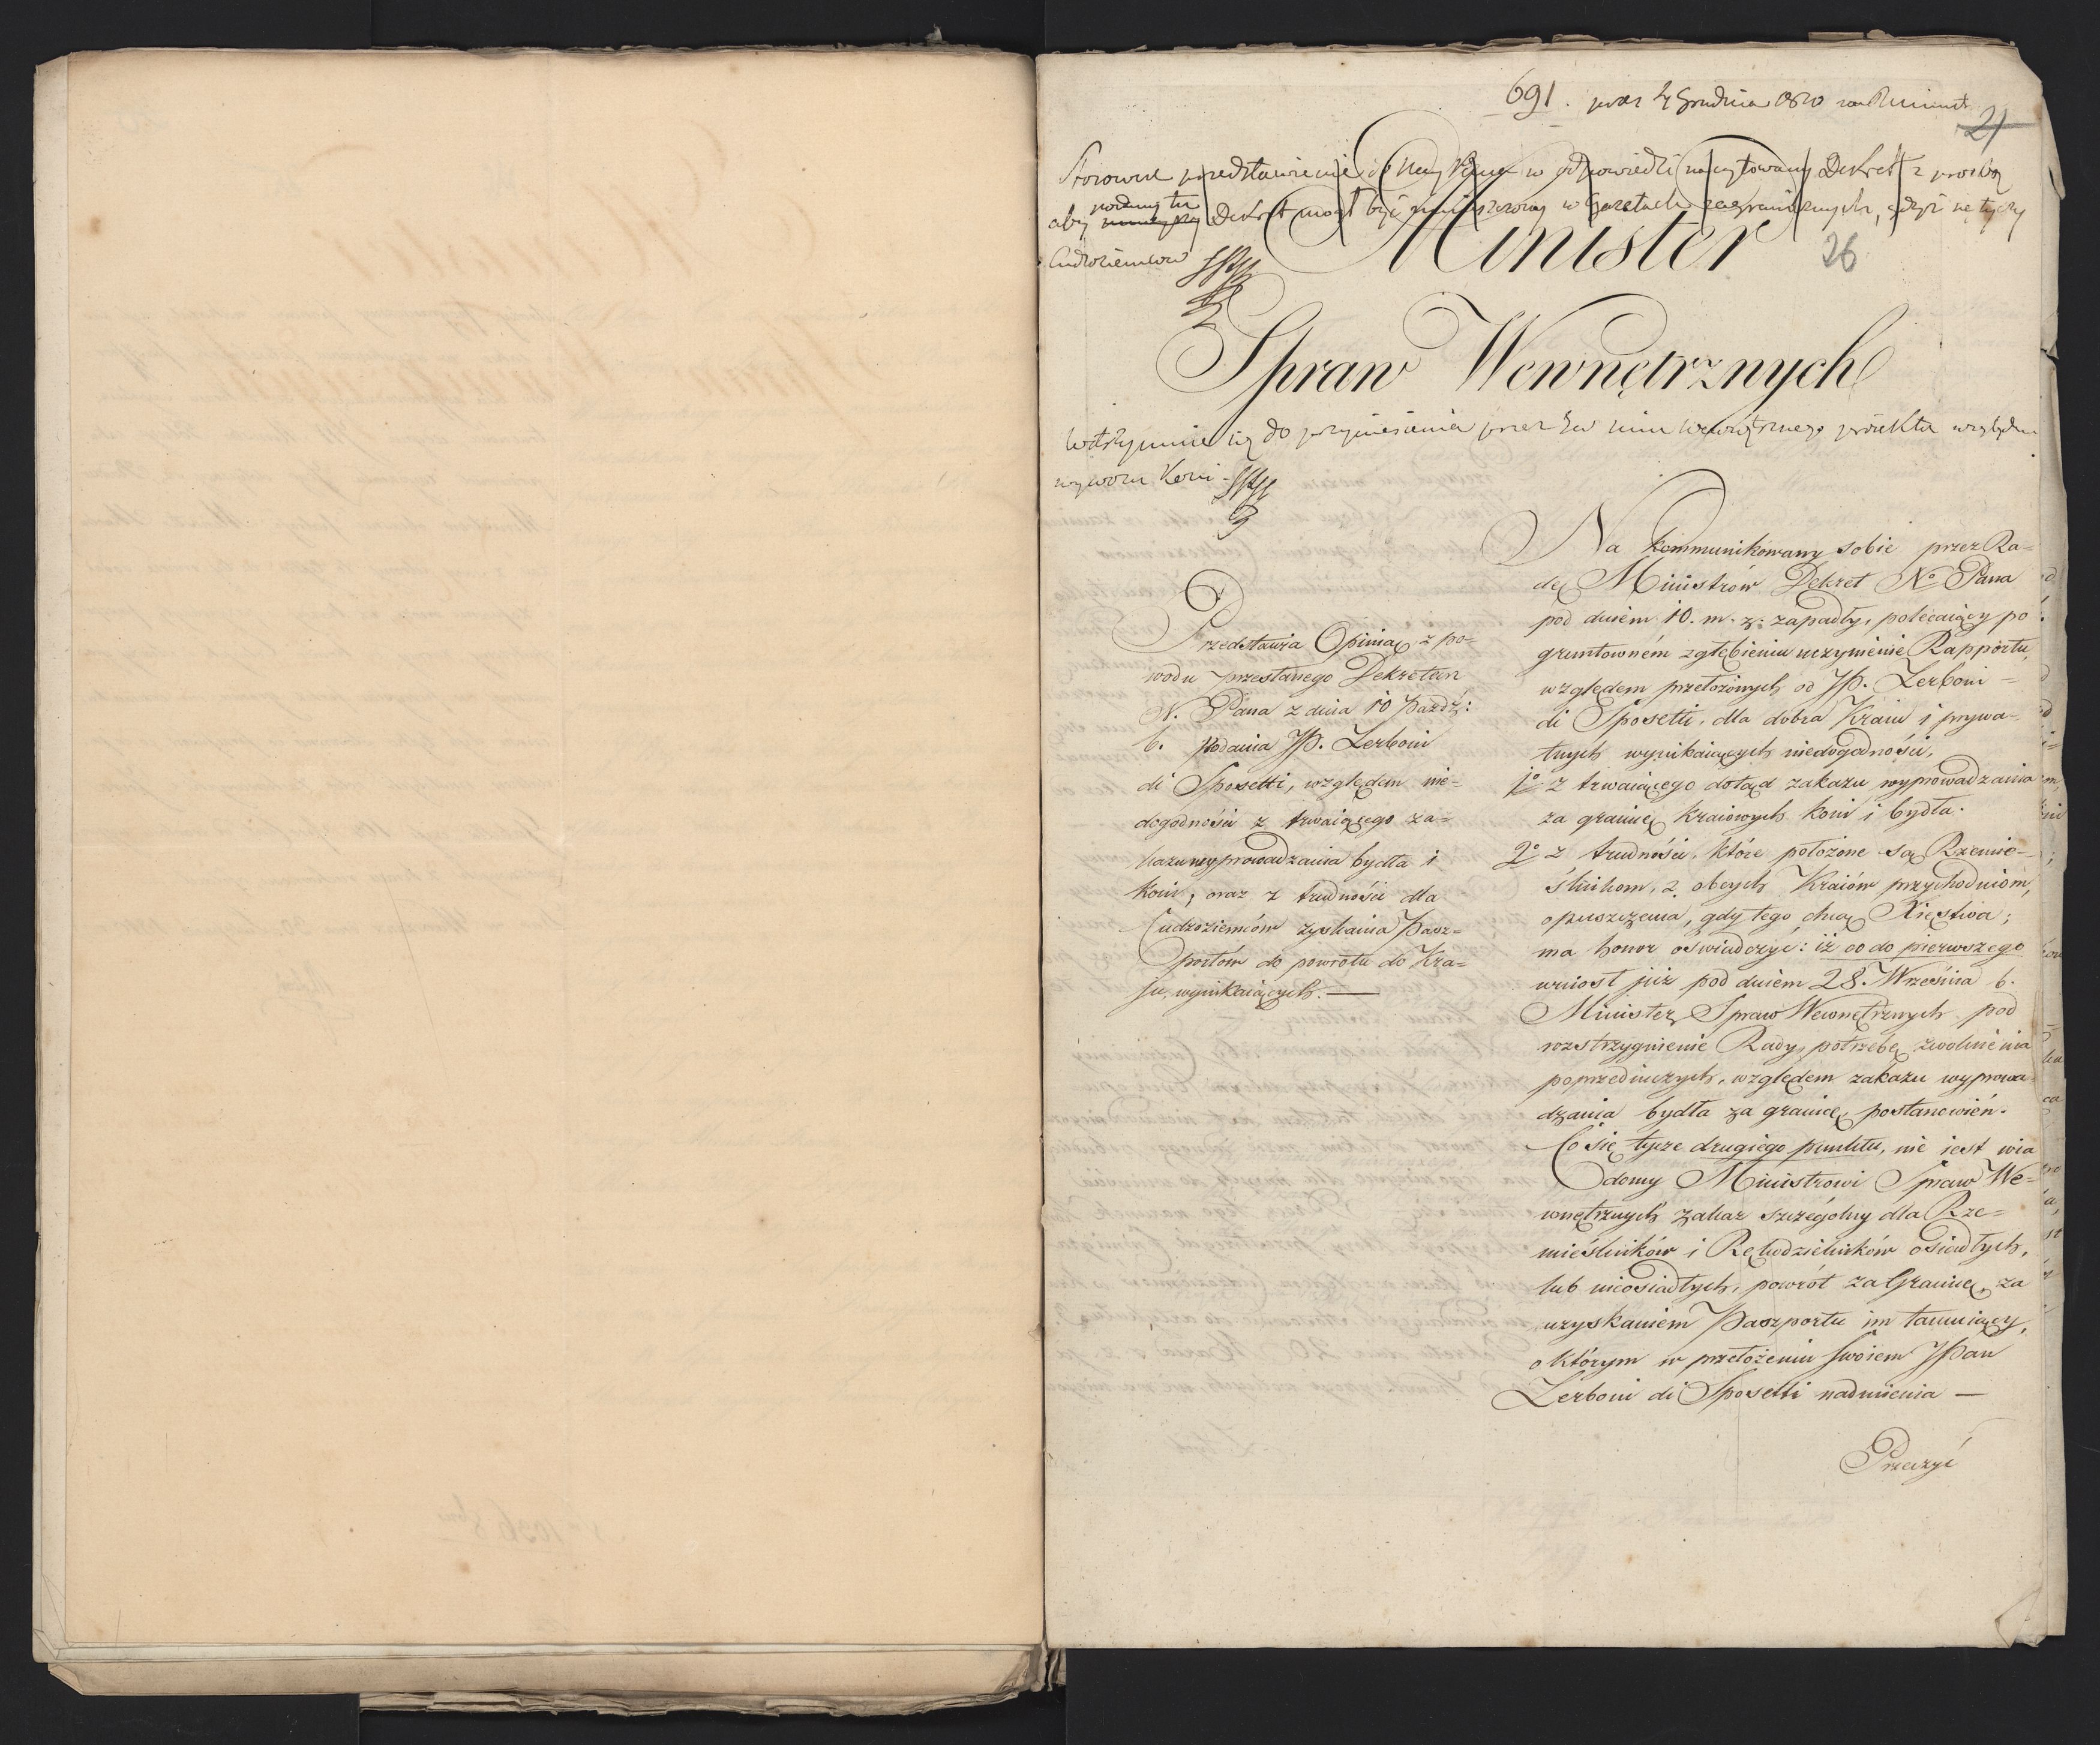 691. prez 4 Grudnia 1810
21
Stosowne przedstawienie do Nay Pana w odpowiedzi na cytowany Dekret z prosbą
aby podany tu Dekret mogł być umieszczony w Gazetach zagranicznych, gdyż się tyczy
Cudzoziemców
Minister
26
Spraw Wewnętrznych
Wstrzymuie się do przyniesienia przez wewnętrznego proiektu względem
wywozu Koni
Przedstawia Opinią z po=
wodu przesłanego Dekretem
N. Pana z dnia 10 Paźdź:
b. Podania JP. Zerboni
di Sposetti, względem nie=
dogodności z trwaiącego za=
kazu wyprowadzania bydła i
koni, oraz z trudności dla
Cudzoziemców zyskania Pasz=
portów do powrotu do Kra=
iu, wynikaiących. —
Na kommunikowany sobie przez Ra=
dę Ministrów Dekret No Pana
pod dniem 10. m. z. zapadły, polecaiący po
gruntowném zgłębieniu uczynienie Rapportu,
względem przełożonych od JP. Zerboni =
di Sposetti, dla dobra Kraiu i prywa=
tnych wynikaiących niedogodności,
1o z trwaiącego dotąd zakazu wyprowadzania
za granicę kraiowych koni i bydła.
2o z trudności, które położone są Rzemie=
ślnikom, z obcych Kraiów przychodniom,
opuszczenia, gdy tego chcą Xięstwa;
ma honor oświadczyć: iż co do pierwszego
wniosł już pod dniem 28. Września b.
Minister Spraw Wewnętrznych pod
rozstrzygnienie Rady, potrzebę zwolnienia
poprzedniczych, względem zakazu wyprowa=
dzania bydła za granicę postanowień.
Co się tycze drugiego punktu, nie iest wia
domy Ministrowi Spraw We=
wnętrznych zakaz szczególny dla Rze=
mieślników i Rękodzielników osiadłych,
lub nieosiadłych, powrót za Granicę, za
uzyskaniem Paszportu im tamuiący,
o którym w przełożeniu swoiem JPan
Zerboni di Sposetti nadmienia —
Przeczyć